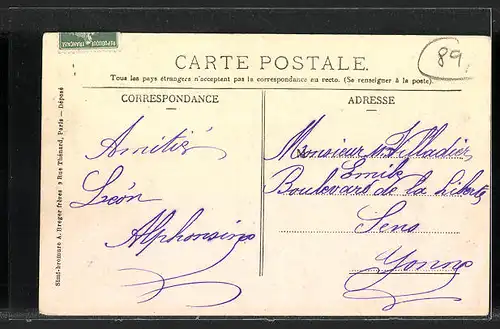 REPUBLIQUE FRANÇAISE
CARTE POSTALE.
89
Tous les pays étrangers n'acceptent pas la correspondance au recto. (Se renseigner à la poste).
CORRESPONDANCE
Amitié
Léon
Alphonsine
ADRESSE
Monsieur
Emile
Boulevard de la Liberté
Sens
Yonne
Simi-bromure A. Breger frères 9 Rue Thénard, Paris — Déposé